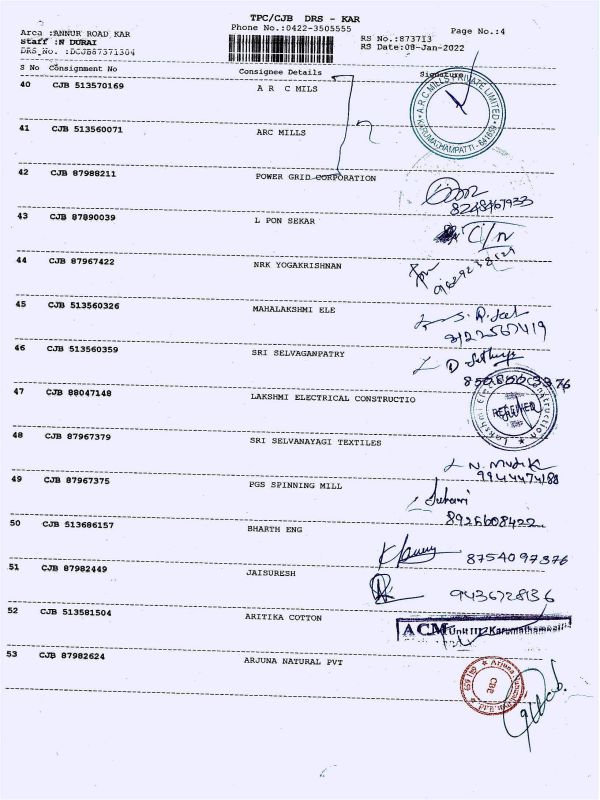 TPC/CJB DRS - KAR
Phone No.:0422-3505555
Page No.:4
Area :ANNUR ROAD KAR
Staff :N DURAI
DRS_No. :DCJB87371304
RS No.:873713
RS Date:08-Jan-2022
S No Consignment No Consignee Details Signature
40 CJB 513570169 A R C MILS
A.R.C MILLS PRIVATE LIMITED
KARUMATHAMPATTI - 641659
41 CJB 513560071 ARC MILLS
42 CJB 87988211 POWER GRID CORPORATION
8248467933
43 CJB 87890039 L PON SEKAR
44 CJB 87967422 NRK YOGAKRISHNAN
45 CJB 513560326 MAHALAKSHMI ELE
46 CJB 513560359 SRI SELVAGANPATRY
47 CJB 88047148 LAKSHMI ELECTRICAL CONSTRUCTIO
48 CJB 87967379 SRI SELVANAYAGI TEXTILES
9944474188
49 CJB 87967375 PGS SPINNING MILL
8926608422
50 CJB 513686157 BHARTH ENG
8754097376
51 CJB 87982449 JAISURESH
9436728136
52 CJB 513581504 ARITIKA COTTON
ACM Unit III Karumathampatti
53 CJB 87982624 ARJUNA NATURAL PVT
CBE